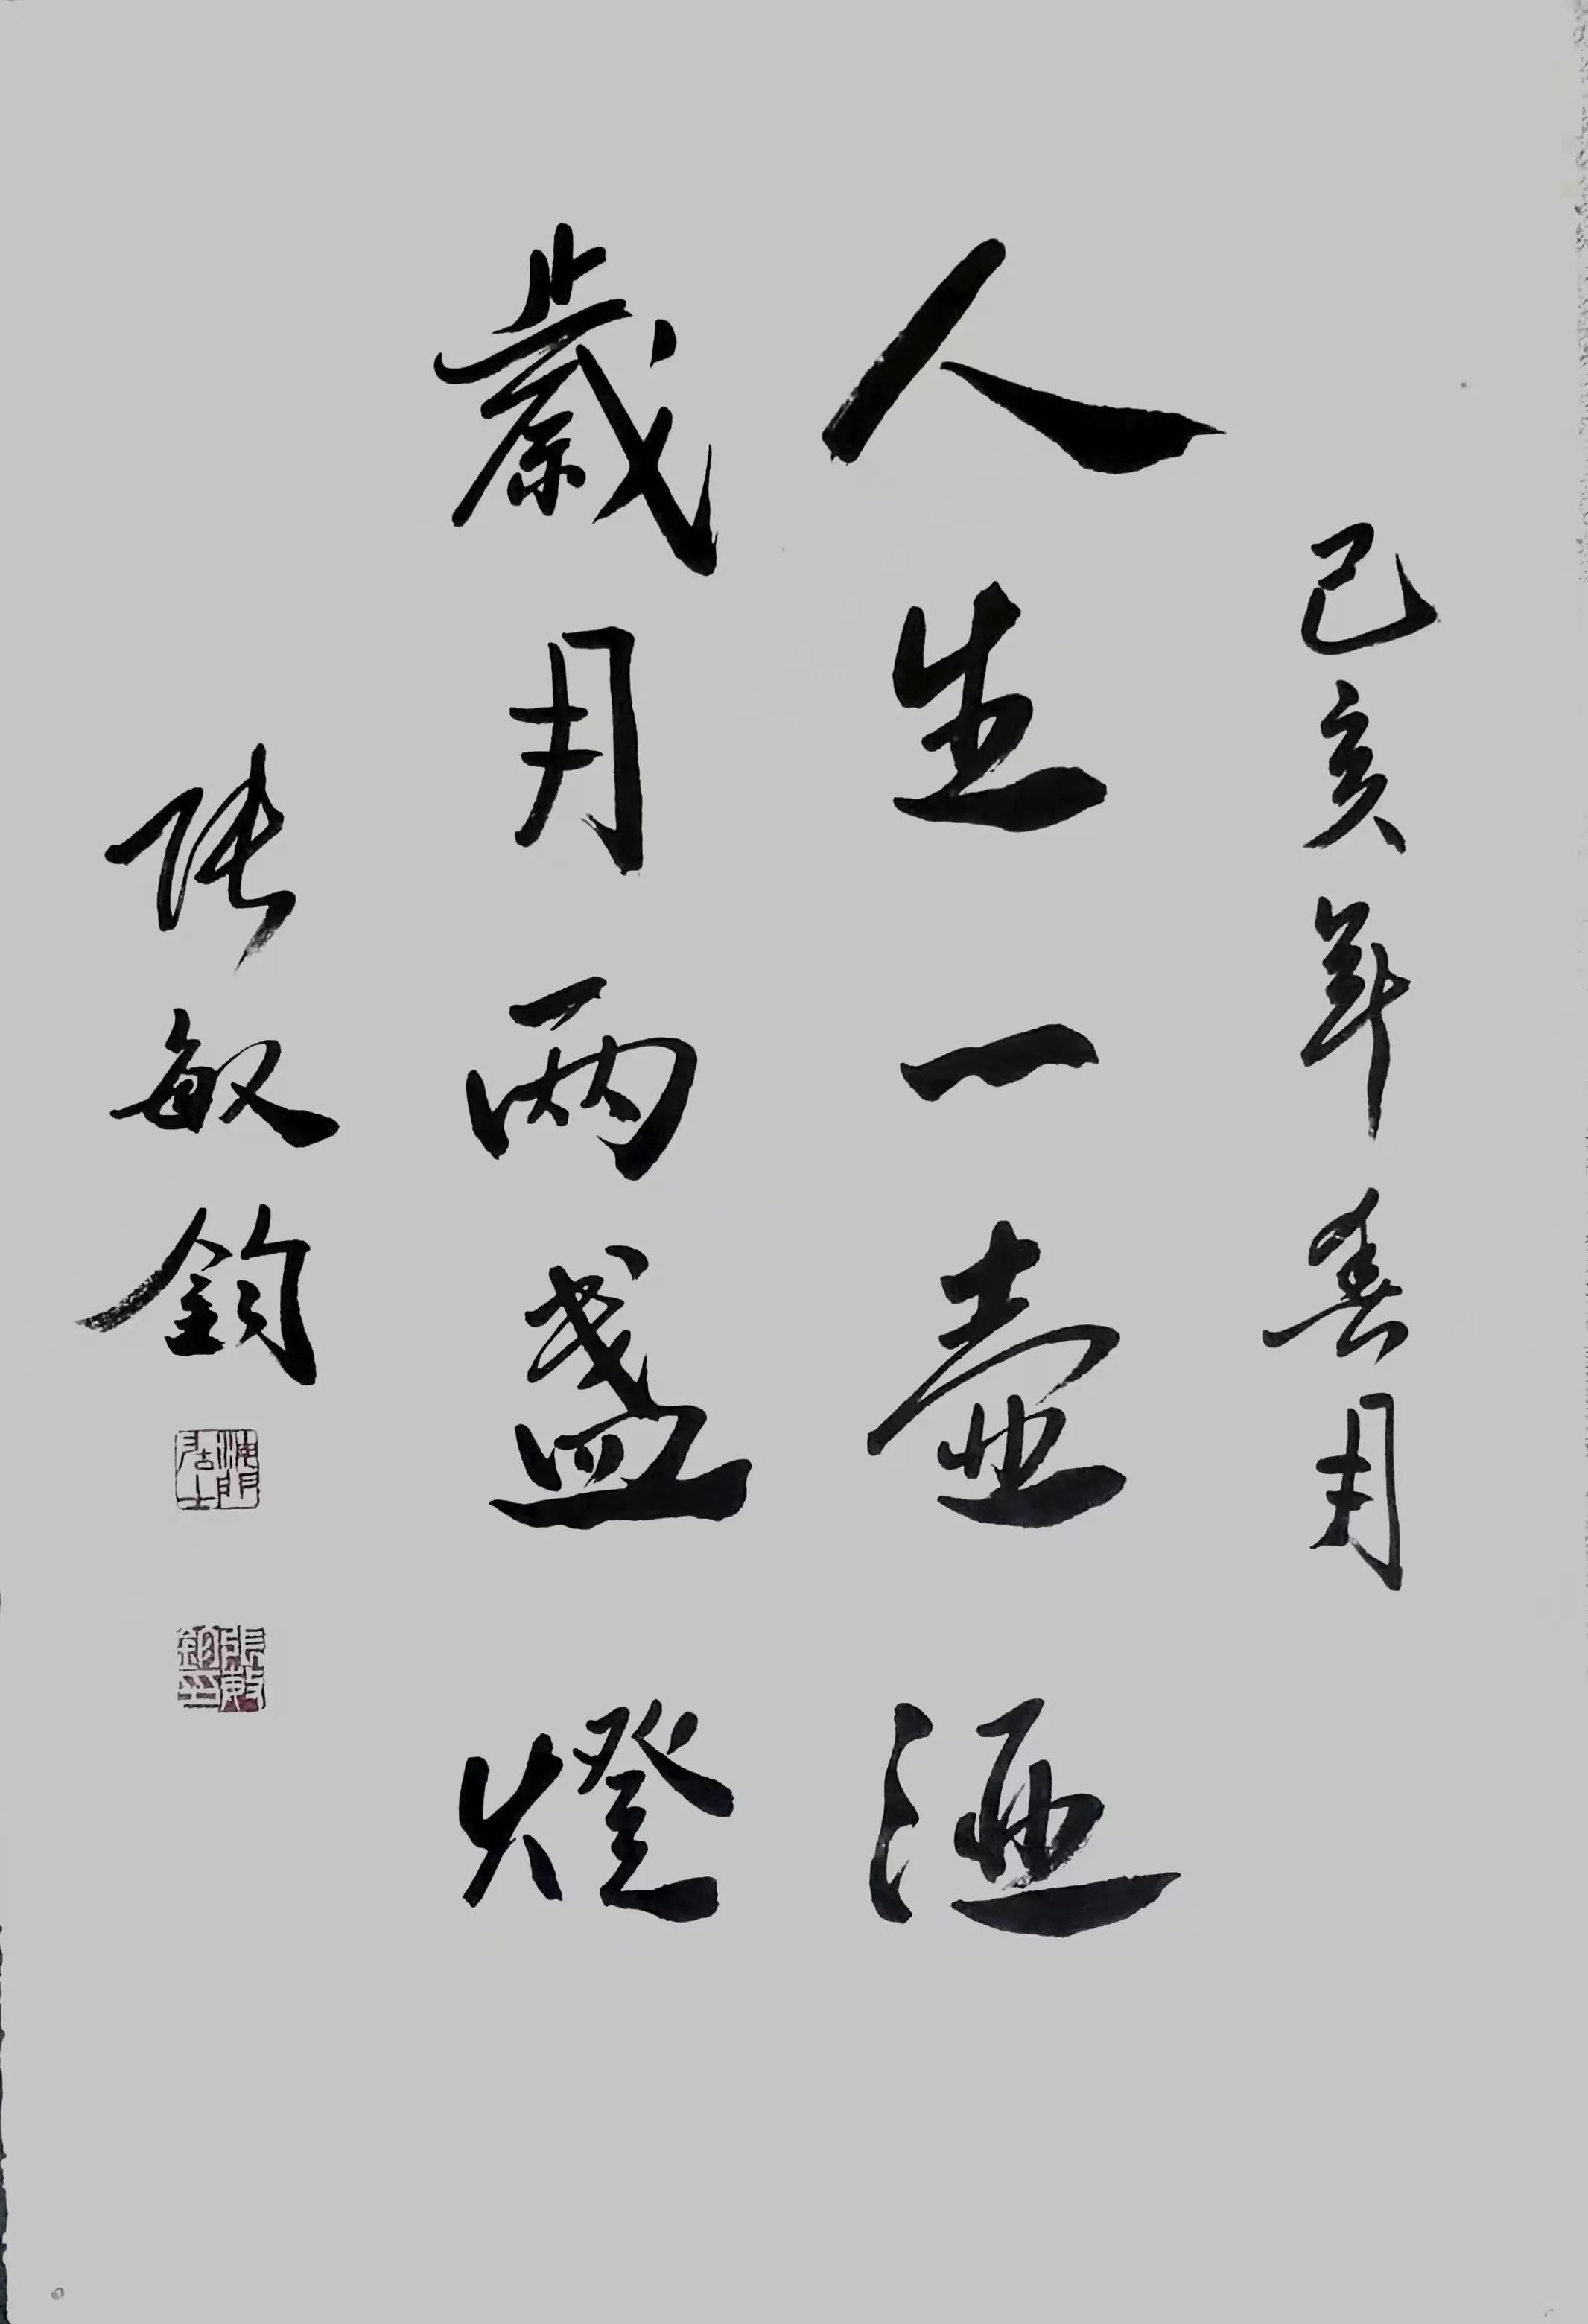 己亥年春月
人生一壺酒
歲月兩盞燈
張敏鈞
張敏鈞印